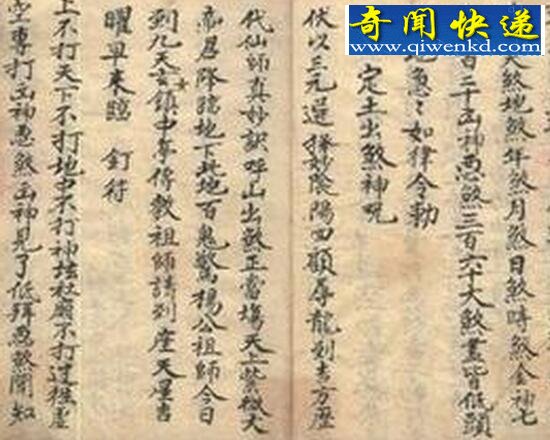 奇闻快递
www.qiwenkd.com
天煞地煞年煞月煞日煞時煞金神七
百二十凶神恶煞三百六十大煞盡皆低頭
地急〻如律令勅
定土出煞神咒
伏以三元選擇妙陰陽四顧尋龍到吉方座
代山師真妙訣呼山出煞正當場天上紫微大
帝君降臨地下此地百鬼驚楊公祖師今日
到九天玄鎮中事傳教祖師請到座天星吉
曜早来臨 釘符
上不打天下不打地中不打神坛社廟不打过往虛
空專打凶神恶煞凶神見了低頭恶煞聞知